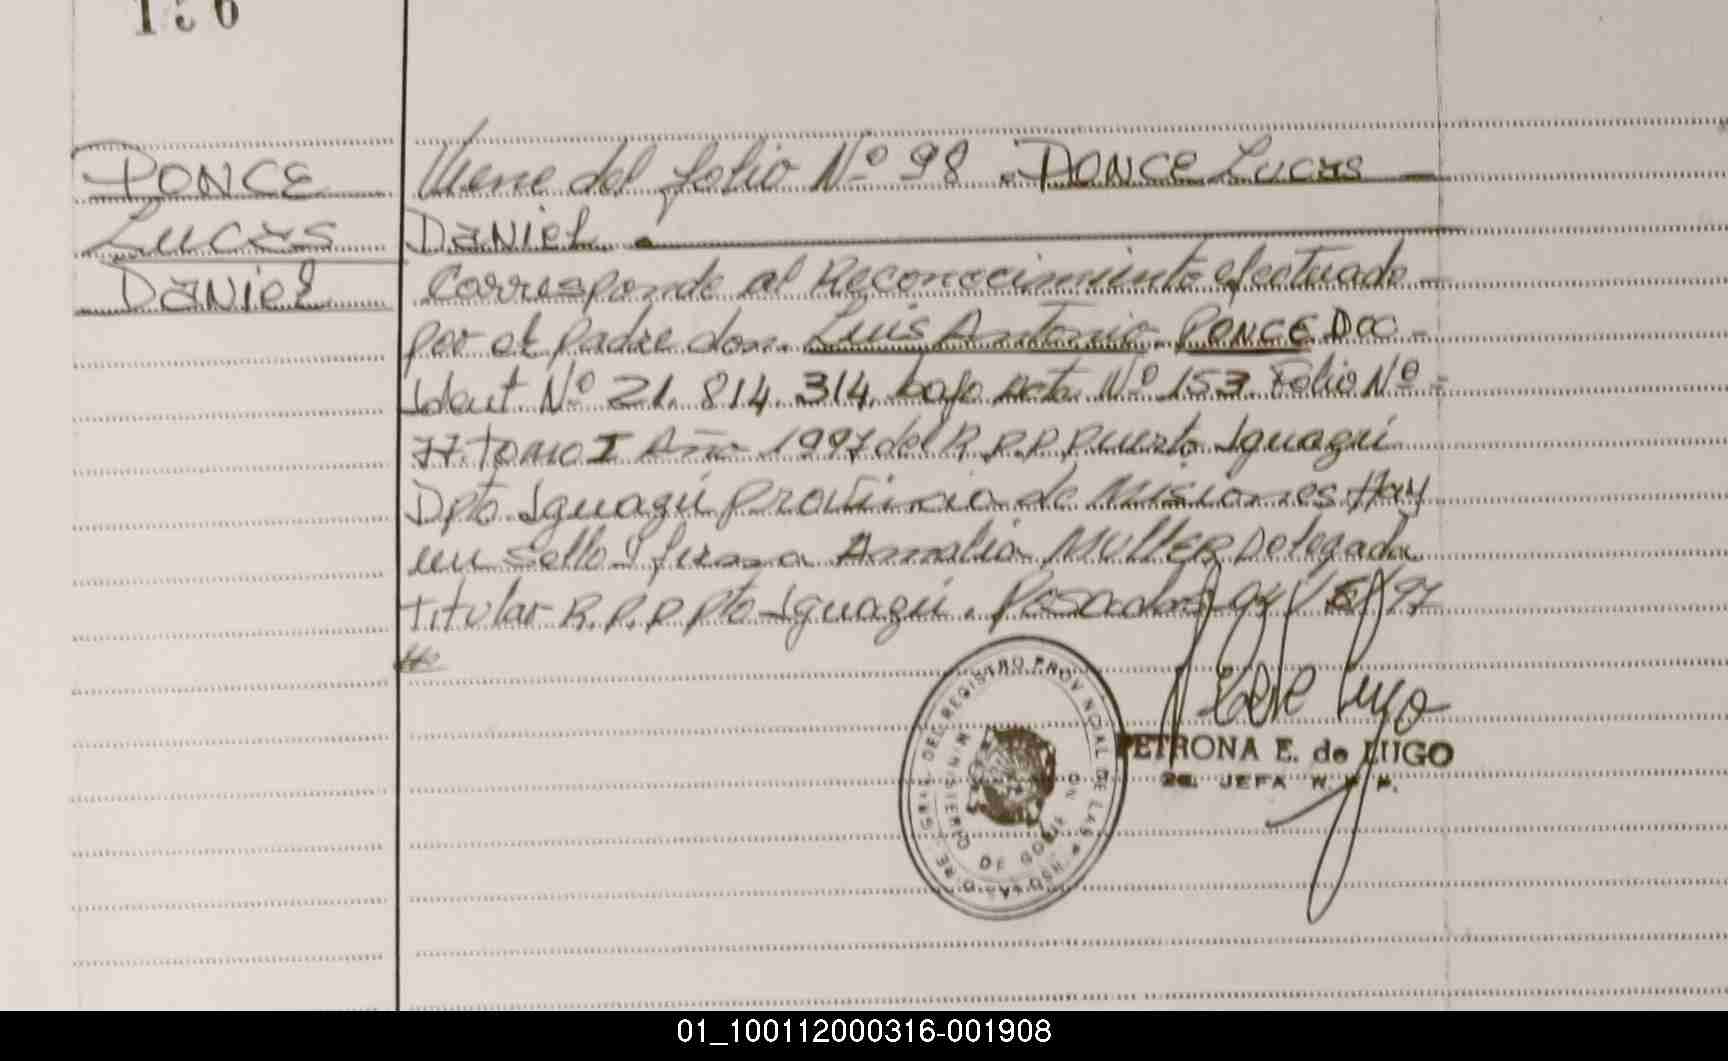 PONCE
Lucas
Daniel
Viene del folio Nº 98. PONCE Lucas
Daniel.
Corresponde al Reconocimiento efectuado
por el padre don. Luis Antonio. PONCE Doc.
Ident Nº 21.814.314. bajo acta Nº 153. Folio Nº
77. Tomo I Año 1997 del R.P.P. Puerto Iguazú
Dpto. Iguazú Provincia de Misiones. Hay
un sello y firma Amalia MULLER Delegada
Titular R.P.P. Pto Iguazú. Posadas
REGISTRO PROVINCIAL DE LAS
PETRONA E. de LUGO
JEFA R. P. P.
01_100112000316-001908